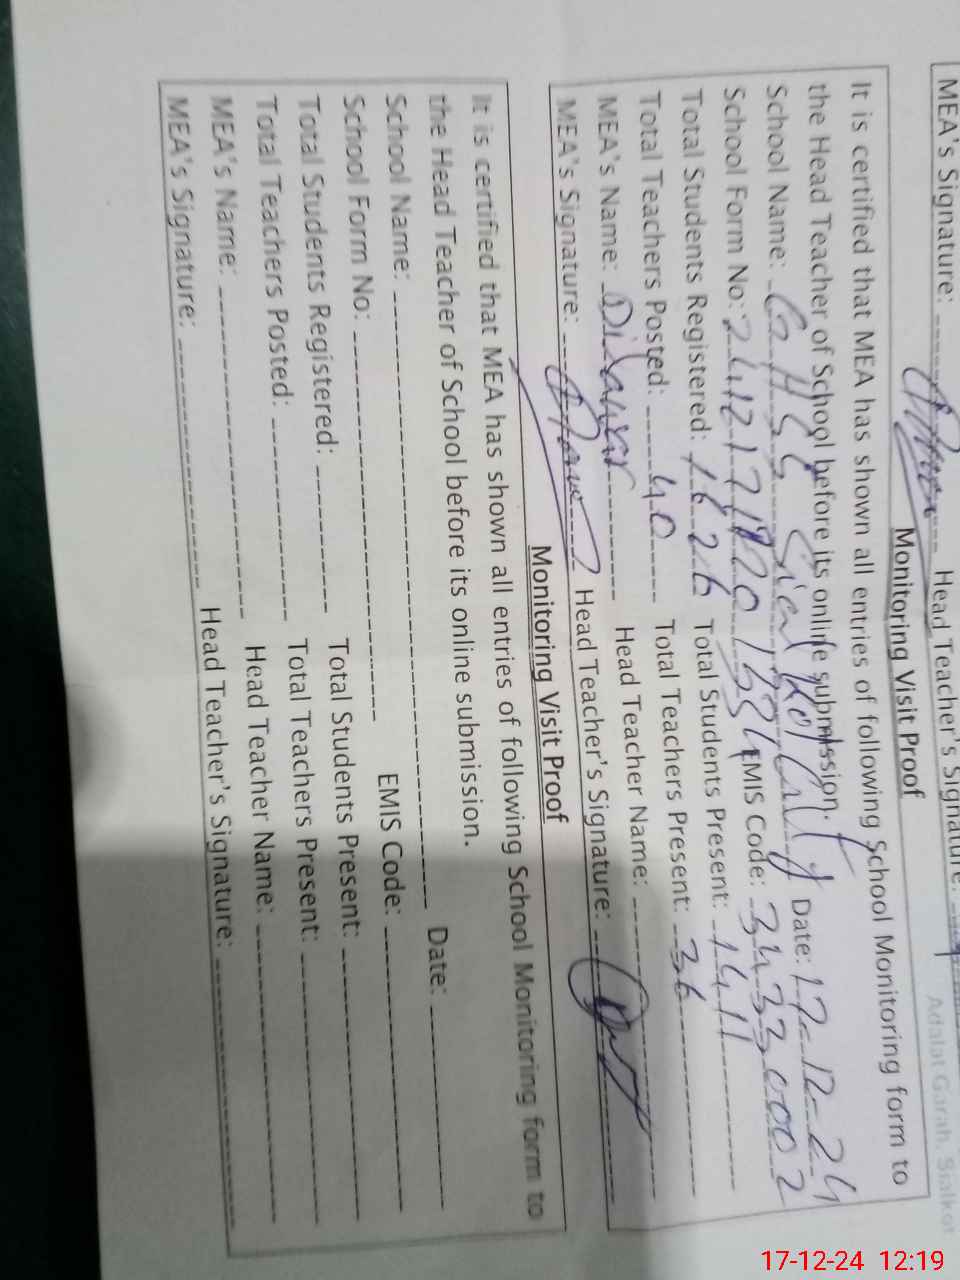 MEA's Signature: Head Teacher's Signature:
Adalat Garah, Sialkot
Monitoring Visit Proof
It is certified that MEA has shown all entries of following School Monitoring form to
the Head Teacher of School before its online submission.
School Name: Sialkot City Date: 17-12-24
School Form No: EMIS Code: 34330002
Total Students Registered: 1626 Total Students Present: 1411
Total Teachers Posted: 40 Total Teachers Present: 36
MEA's Name: Dilawar Head Teacher Name:
MEA's Signature: Head Teacher's Signature:
Monitoring Visit Proof
It is certified that MEA has shown all entries of following School Monitoring form to
the Head Teacher of School before its online submission.
School Name: Date:
School Form No: EMIS Code:
Total Students Registered: Total Students Present:
Total Teachers Posted: Total Teachers Present:
MEA's Name: Head Teacher Name:
MEA's Signature: Head Teacher's Signature:
17-12-24 12:19